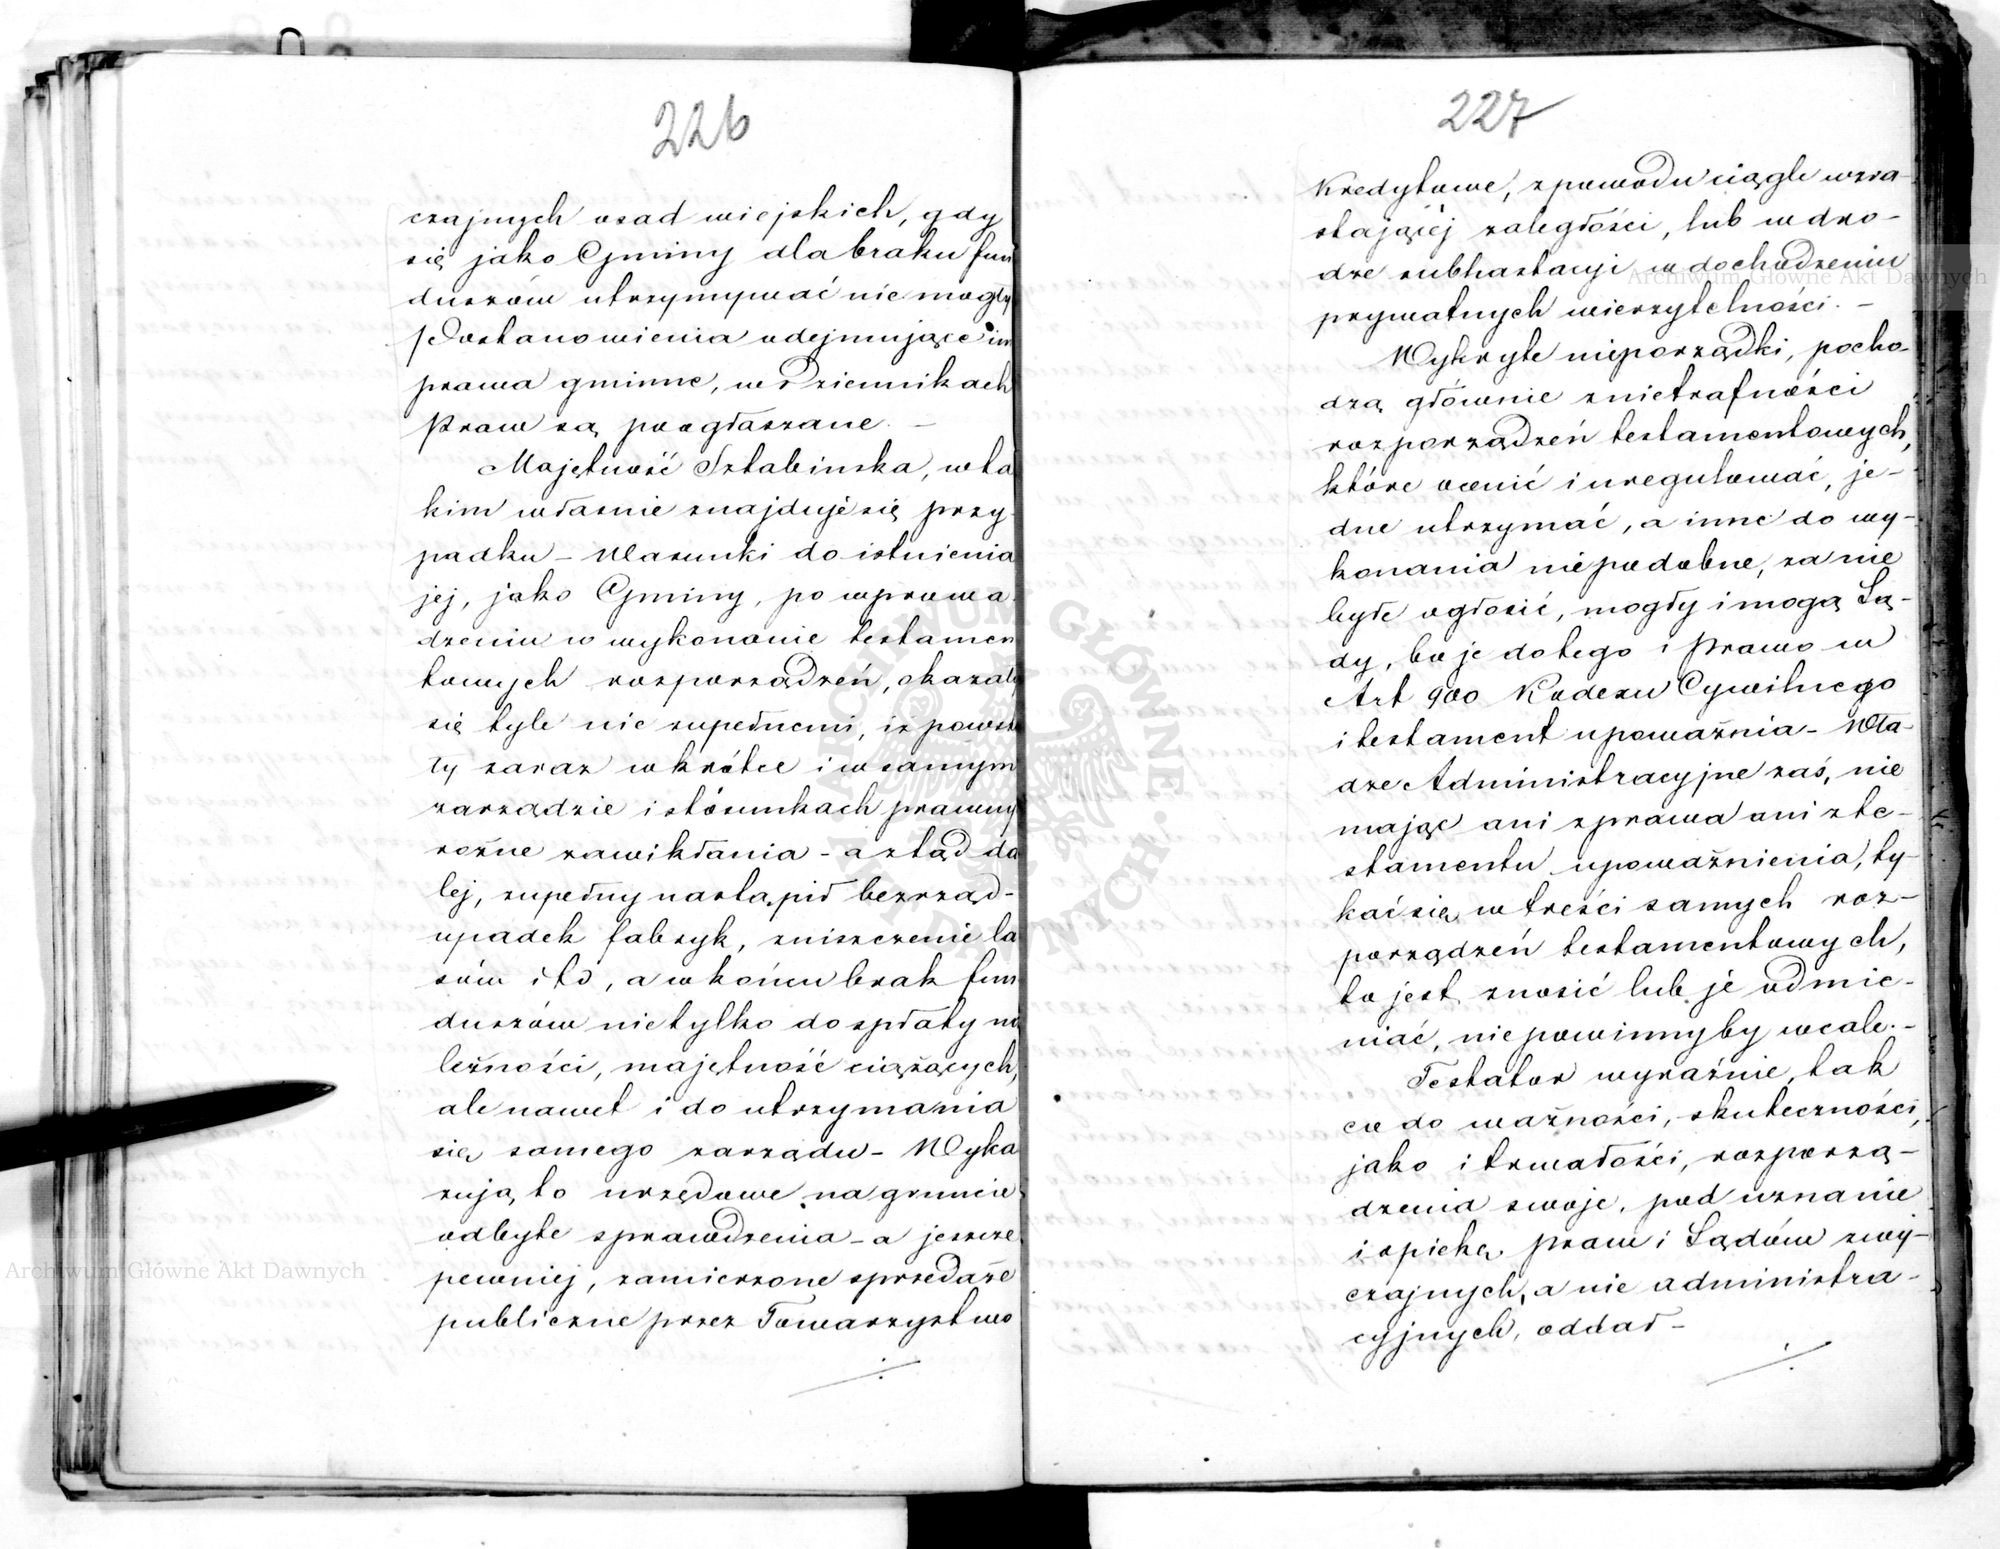 226
czajnych osad wiejskich, gdy
się jako Gminy dla braku fun
duszów utrzymywać nie mogły
Postanowienia odejmujące im
prawa gminne, w Dziennikach
Praw są poogłaszane. –
Majętność Sztabinska, w ta
kim własnie znajduje się przy
padku – Warunki do istnienia
jej, jako Gminy, po wprowa
dzeniu w wykonanie testamen
towych rozporządzeń, okazały
się tyle nie zupełnemi, iż powsta
ły zaraz wkrótce i w samym
zarządzie i stósunkach prawny
rożne zawikłania – a ztąd da
lej, zupełny nastąpił bezrząd –
upadek fabryk, zniszczenie la
sów i td, a w końcu brak fun
duszów nietylko do spłaty na
leżności, majętność ciążących,
ale nawet i do utrzymania
się samego zarządu – Wyka
zują to urzędowe na gruncie
odbyte sprawdzenia – a jeszcze
pewniej, zamierzone sprzedaże
publiczne przez Towarzystwo
227
Kredytowe, z powodu ciągle wzra-
stającéj zaległości, lub w dro-
dze subhastacyi w dochodzeniu
prywatnych wierzytelności. –
Wykryte nieporządki, pocho-
dzą głównie z nietrafności
rozporządzeń testamentowych,
które ocenić i uregulować, je-
dne utrzymać, a inne do wy-
konania niepodobne, za nie
byłe ogłosić, mogły i mogą Są-
dy, bo je do tego i Prawo w
Art 900 Kodexu Cywilnego
i testament upoważnia – Wła-
dze Administracyjne zaś, nie
mając ani z prawa ani z te-
stamentu upoważnienia, ty-
kać się w treści samych roz-
porządzeń testamentowych,
to jest znosić lub je odmie-
niać, nie powinnyby wcale. –
Testator wyraźnie, tak
co do ważności, skuteczności,
jako i trwałości, rozporzą-
dzenia swoje, pod uznanie
i opiekę praw i Sądów zwy-
czajnych, a nie administra-
cyjnych, oddał –
Archiwum Główne Akt Dawnych
Archiwum Główne Akt Dawnych
ARCHIWUM GŁÓWNE AKT DAWNYCH